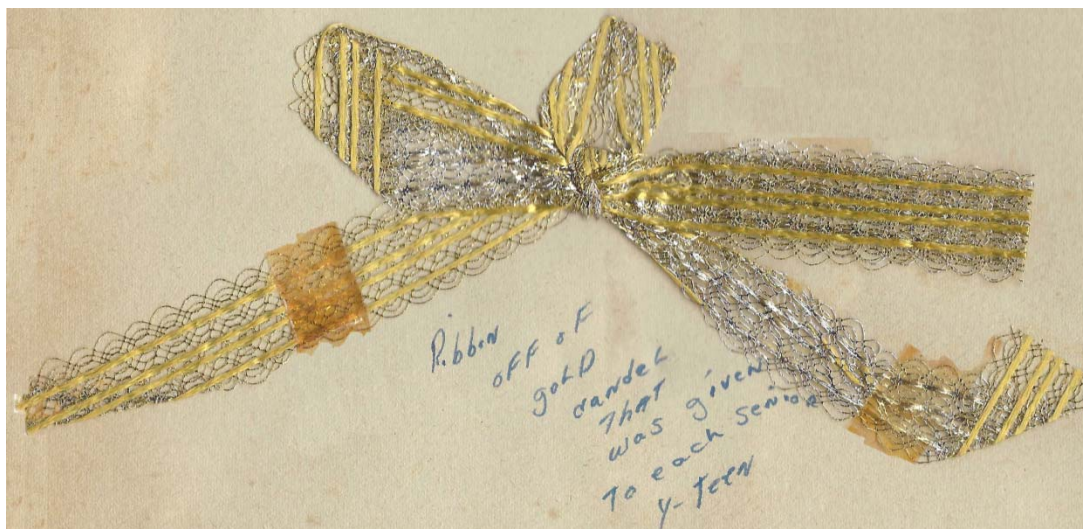 Ribbon
off of
gold
candel
that
was given
to each senior
Y-Teen